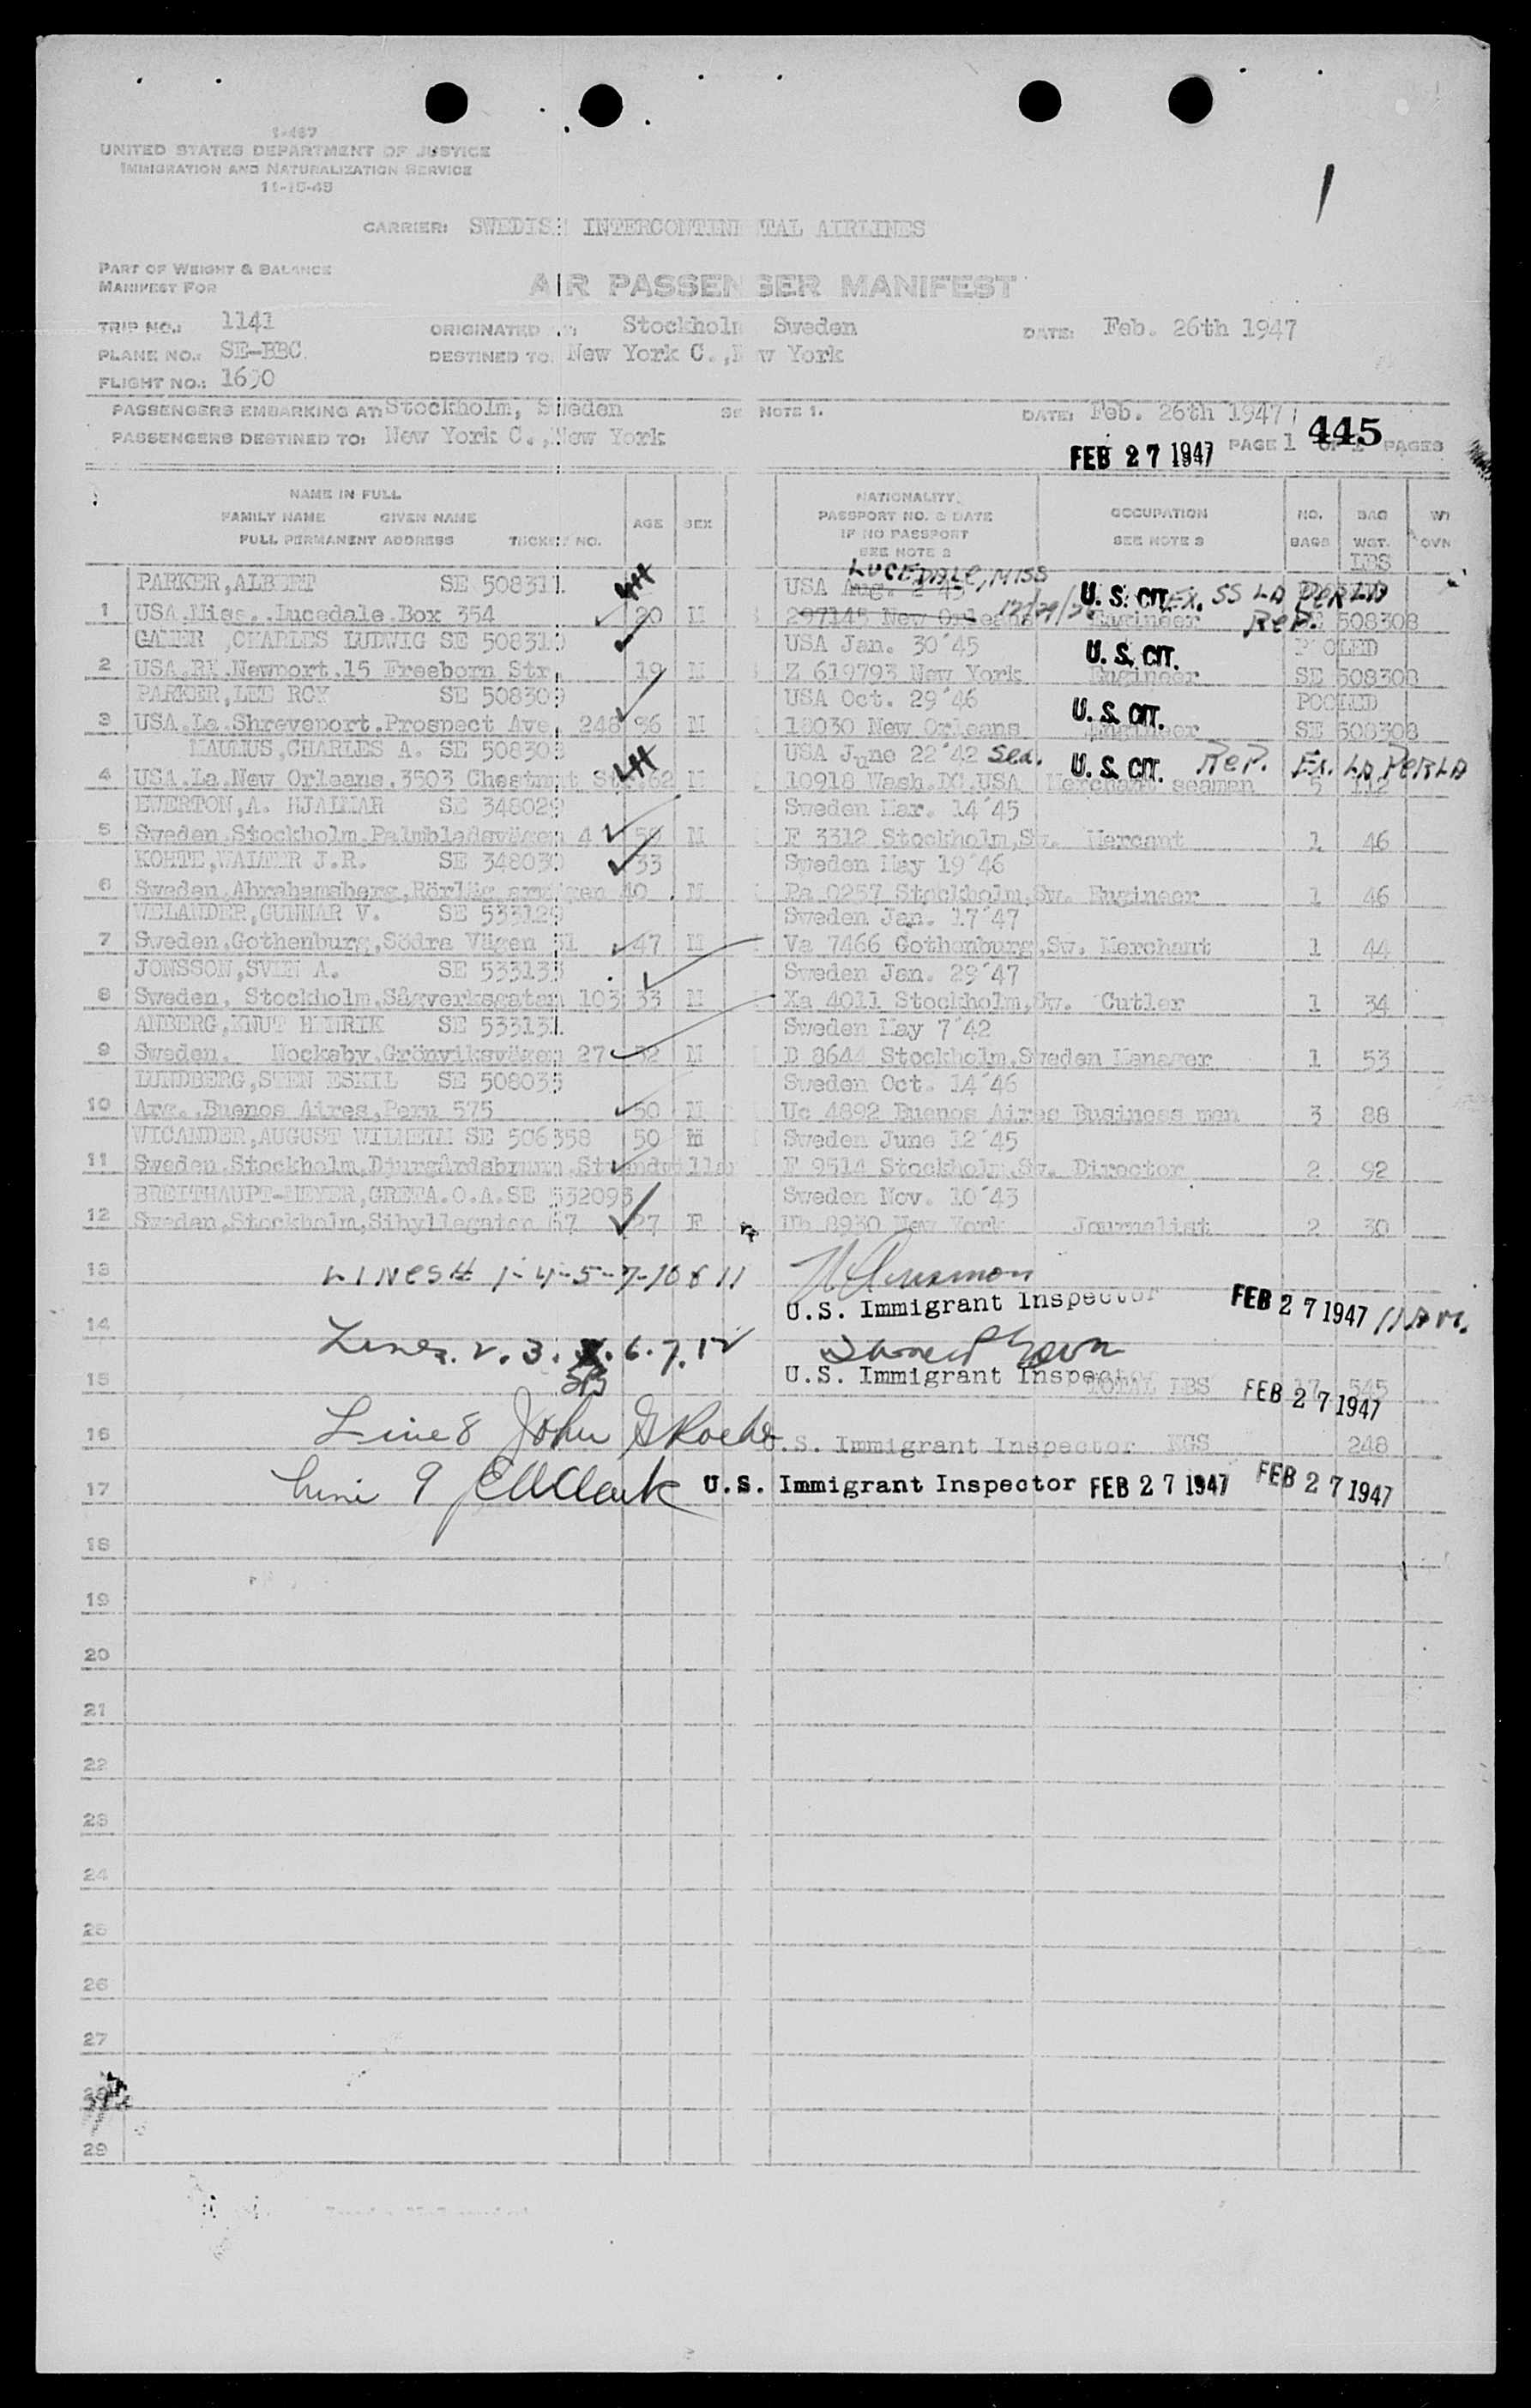 1
I-467
UNITED STATES DEPARTMENT OF JUSTICE
IMMIGRATION AND NATURALIZATION SERVICE
11-15-45
CARRIER: SWEDISH INTERCONTINENTAL AIRLINES
PART OF WEIGHT & BALANCE
MANIFEST FOR
AIR PASSENGER MANIFEST
TRIP NO.: 1141 ORIGINATED AT: Stockholm Sweden DATE: Feb. 26th 1947
PLANE NO.: SE-BBC. DESTINED TO: New York C., New York
FLIGHT NO.: 1630
PASSENGERS EMBARKING AT: Stockholm, Sweden SEE NOTE 1. DATE: Feb. 26th 1947
PASSENGERS DESTINED TO: New York C., New York FEB 27 1947 PAGE 1 OF 1 PAGES 445
NAME IN FULL
FAMILY NAME GIVEN NAME
FULL PERMANENT ADDRESS TICKET NO. AGE SEX
NATIONALITY
PASSPORT NO. & DATE
IF NO PASSPORT
SEE NOTE 2
OCCUPATION
SEE NOTE 3
NO. BAGS BAG WGT. LBS
LUCEDALE, MISS
PARKER,ALBERT SE 508311 USA Aug. 2 45 U.S. CIT. Ex. SS LA PERLA
1 USA.Miss..Lucedale.Box 354 20 M 297145 New Orleans Engineer Rep. SE 508308
GAMER ,CHARLES LUDWIG SE 508310 USA Jan. 30´45 U.S. CIT. POOLED
2 USA.RI.Newport.15 Freeborn Str. 19 M Z 619793 New York Engineer SE 508308
PARKER,LEE ROY SE 508309 USA Oct. 29´46 U.S. CIT. POOLED
3 USA.La.Shreveport.Prospect Ave. 248 36 M 18030 New Orleans Engineer SE 508308
MAULUS,CHARLES A. SE 508308 USA June 22´42 Sea. U.S. CIT. Rep. Ex. LA PERLA
4 USA.La.New Orleans.3503 Chestnut Str. 62 M 10918 Wash.DC.USA Merchant seaman 5 112
EWERTON,A. HJALMAR SE 348029 Sweden Mar. 14´45
5 Sweden,Stockholm,Palmbladsvägen 4 50 M F 3312 Stockholm,Sw. Mercant 1 46
KOHTE,WALTER J.R. SE 348030 33 Sweden May 19´46
6 Sweden,Abrahamsberg,Rörläggarvägen 40 M Pa 0257 Stockholm,Sw. Engineer 1 46
VELANDER,GUNNAR V. SE 533129 Sweden Jan. 17´47
7 Sweden,Gothenburg,Södra Vägen 51 47 M Va 7466 Gothenburg,Sw. Merchant 1 44
JONSSON,SVEN A. SE 533133 Sweden Jan. 29´47
8 Sweden, Stockholm,Sågverksgatan 103 33 M Xa 4011 Stockholm,Sw. Cutler 1 34
ANBERG,KNUT HENRIK SE 533131 Sweden May 7´42
9 Sweden. Nockeby,Grönviksvägen 27 32 M D 8644 Stockholm,Sweden Manager 1 53
LUNDBERG,STEN ESKIL SE 508035 Sweden Oct. 14´46
10 Arg..Buenos Aires,Peru 575 50 M Uc 4892 Buenos Aires Business man 3 88
WICANDER,AUGUST WILHELM SE 506358 50 M Sweden June 12´45
11 Sweden,Stockholm,Djurgårdsbrunn,Strandvilla F 9514 Stockholm,Sw. Director 2 92
BREITHAUPT-MEYER,GRETA.O.A.SE 532093 Sweden Nov. 10´43
12 Sweden,Stockholm,Sibyllegatan 57 27 F Ub 8930 New York Journalist 2 30
13 LINES# 1-4-5-7-10 & 11
U.S. Immigrant Inspector FEB 27 1947 11 AM.
14 Lines. 2. 3. 6. 7. 12
15 U.S. Immigrant Inspector TOTAL LBS 17 545 FEB 27 1947
16 Line 8 John G Roche U.S. Immigrant Inspector KGS 248
17 Line 9 U.S. Immigrant Inspector FEB 27 1947 FEB 27 1947
18
19
20
21
22
23
24
25
26
27
28
29